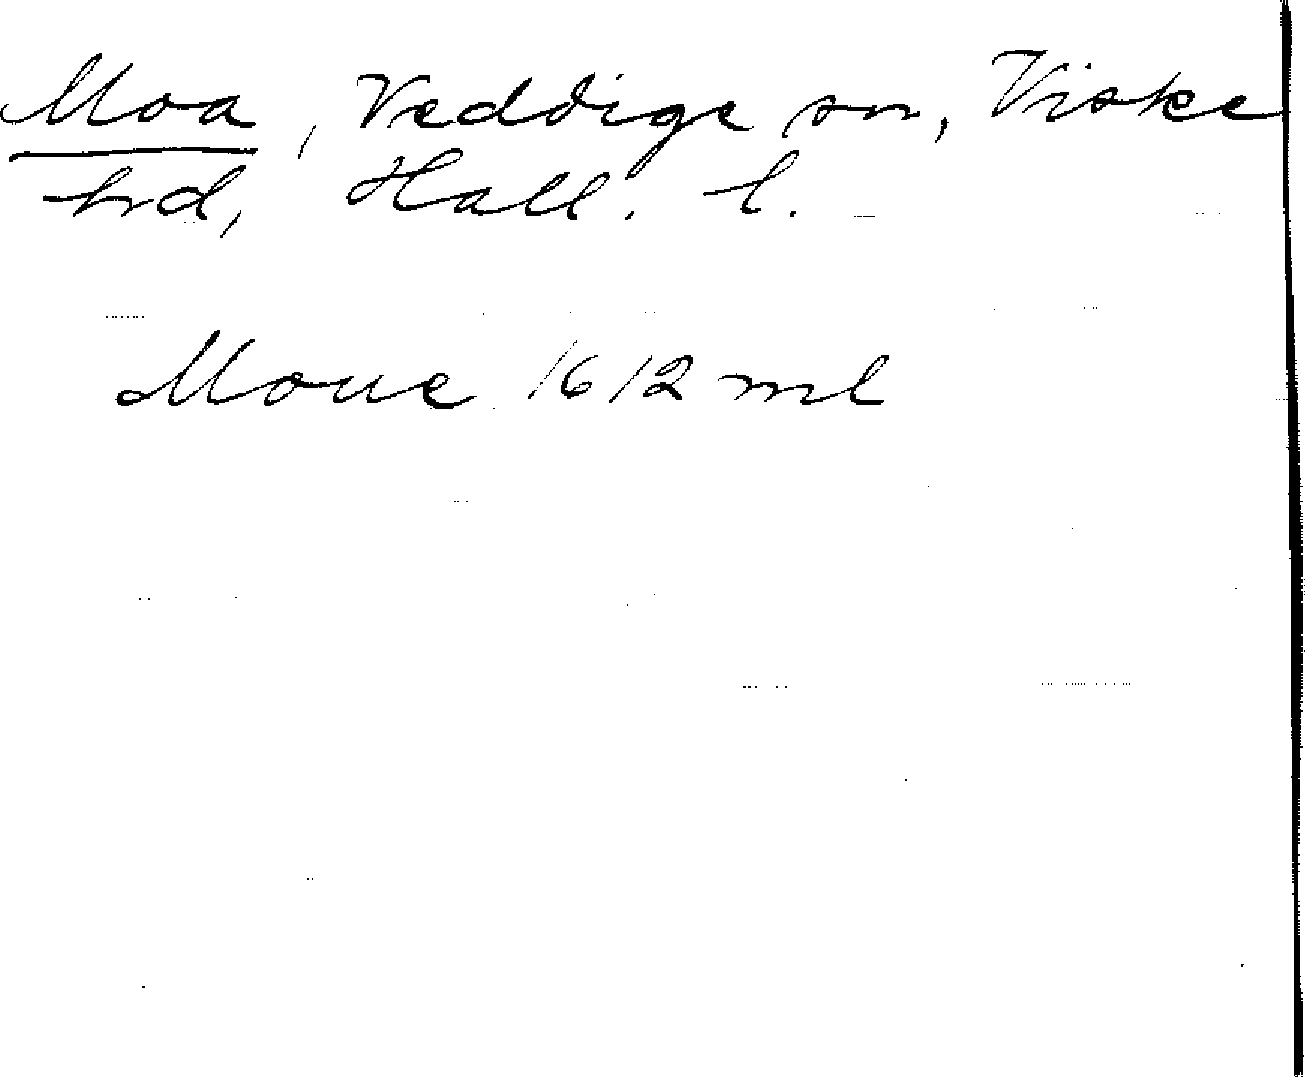 Moa, Veddige sn, Viske
hrd, Hall. l.
Moue 1612 ml